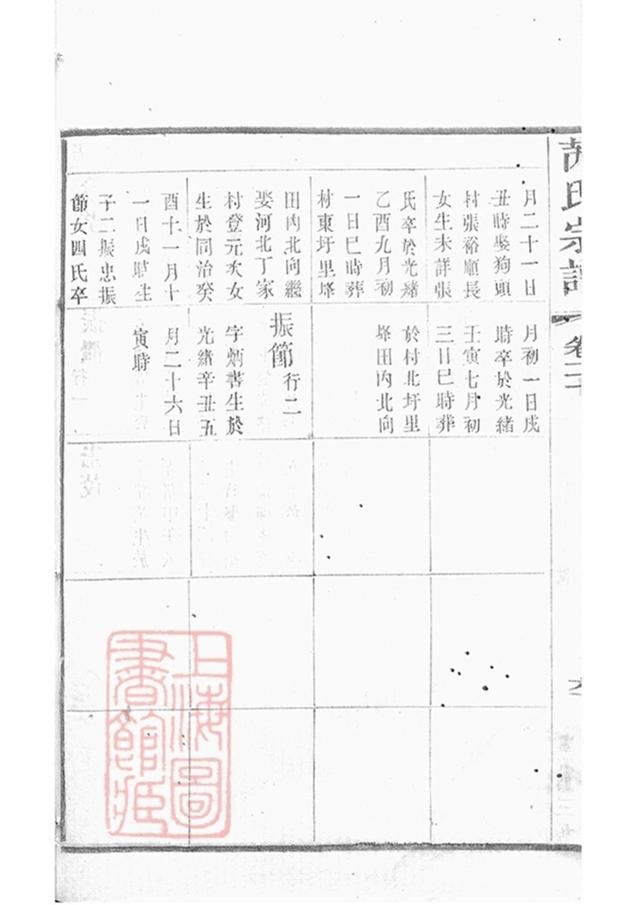 氏宗譜
卷二十
月二十一日
丑時娶狗頭
村張裕順長
女生未詳張
氏卒於光緒
乙酉九月初
一日巳時葬
村東圩里塋
田內北向繼
娶河北丁家
村登元次女
生於同治癸
酉十一月十
一日戌時生
子二振忠振
節女四氏卒
月初一日戌
時卒於光緒
壬寅七月初
三日巳時葬
於村北圩里
塋田內北向
振節行二
字炳書生於
光緒辛丑五
月二十六日
寅時
上海圖
書館藏